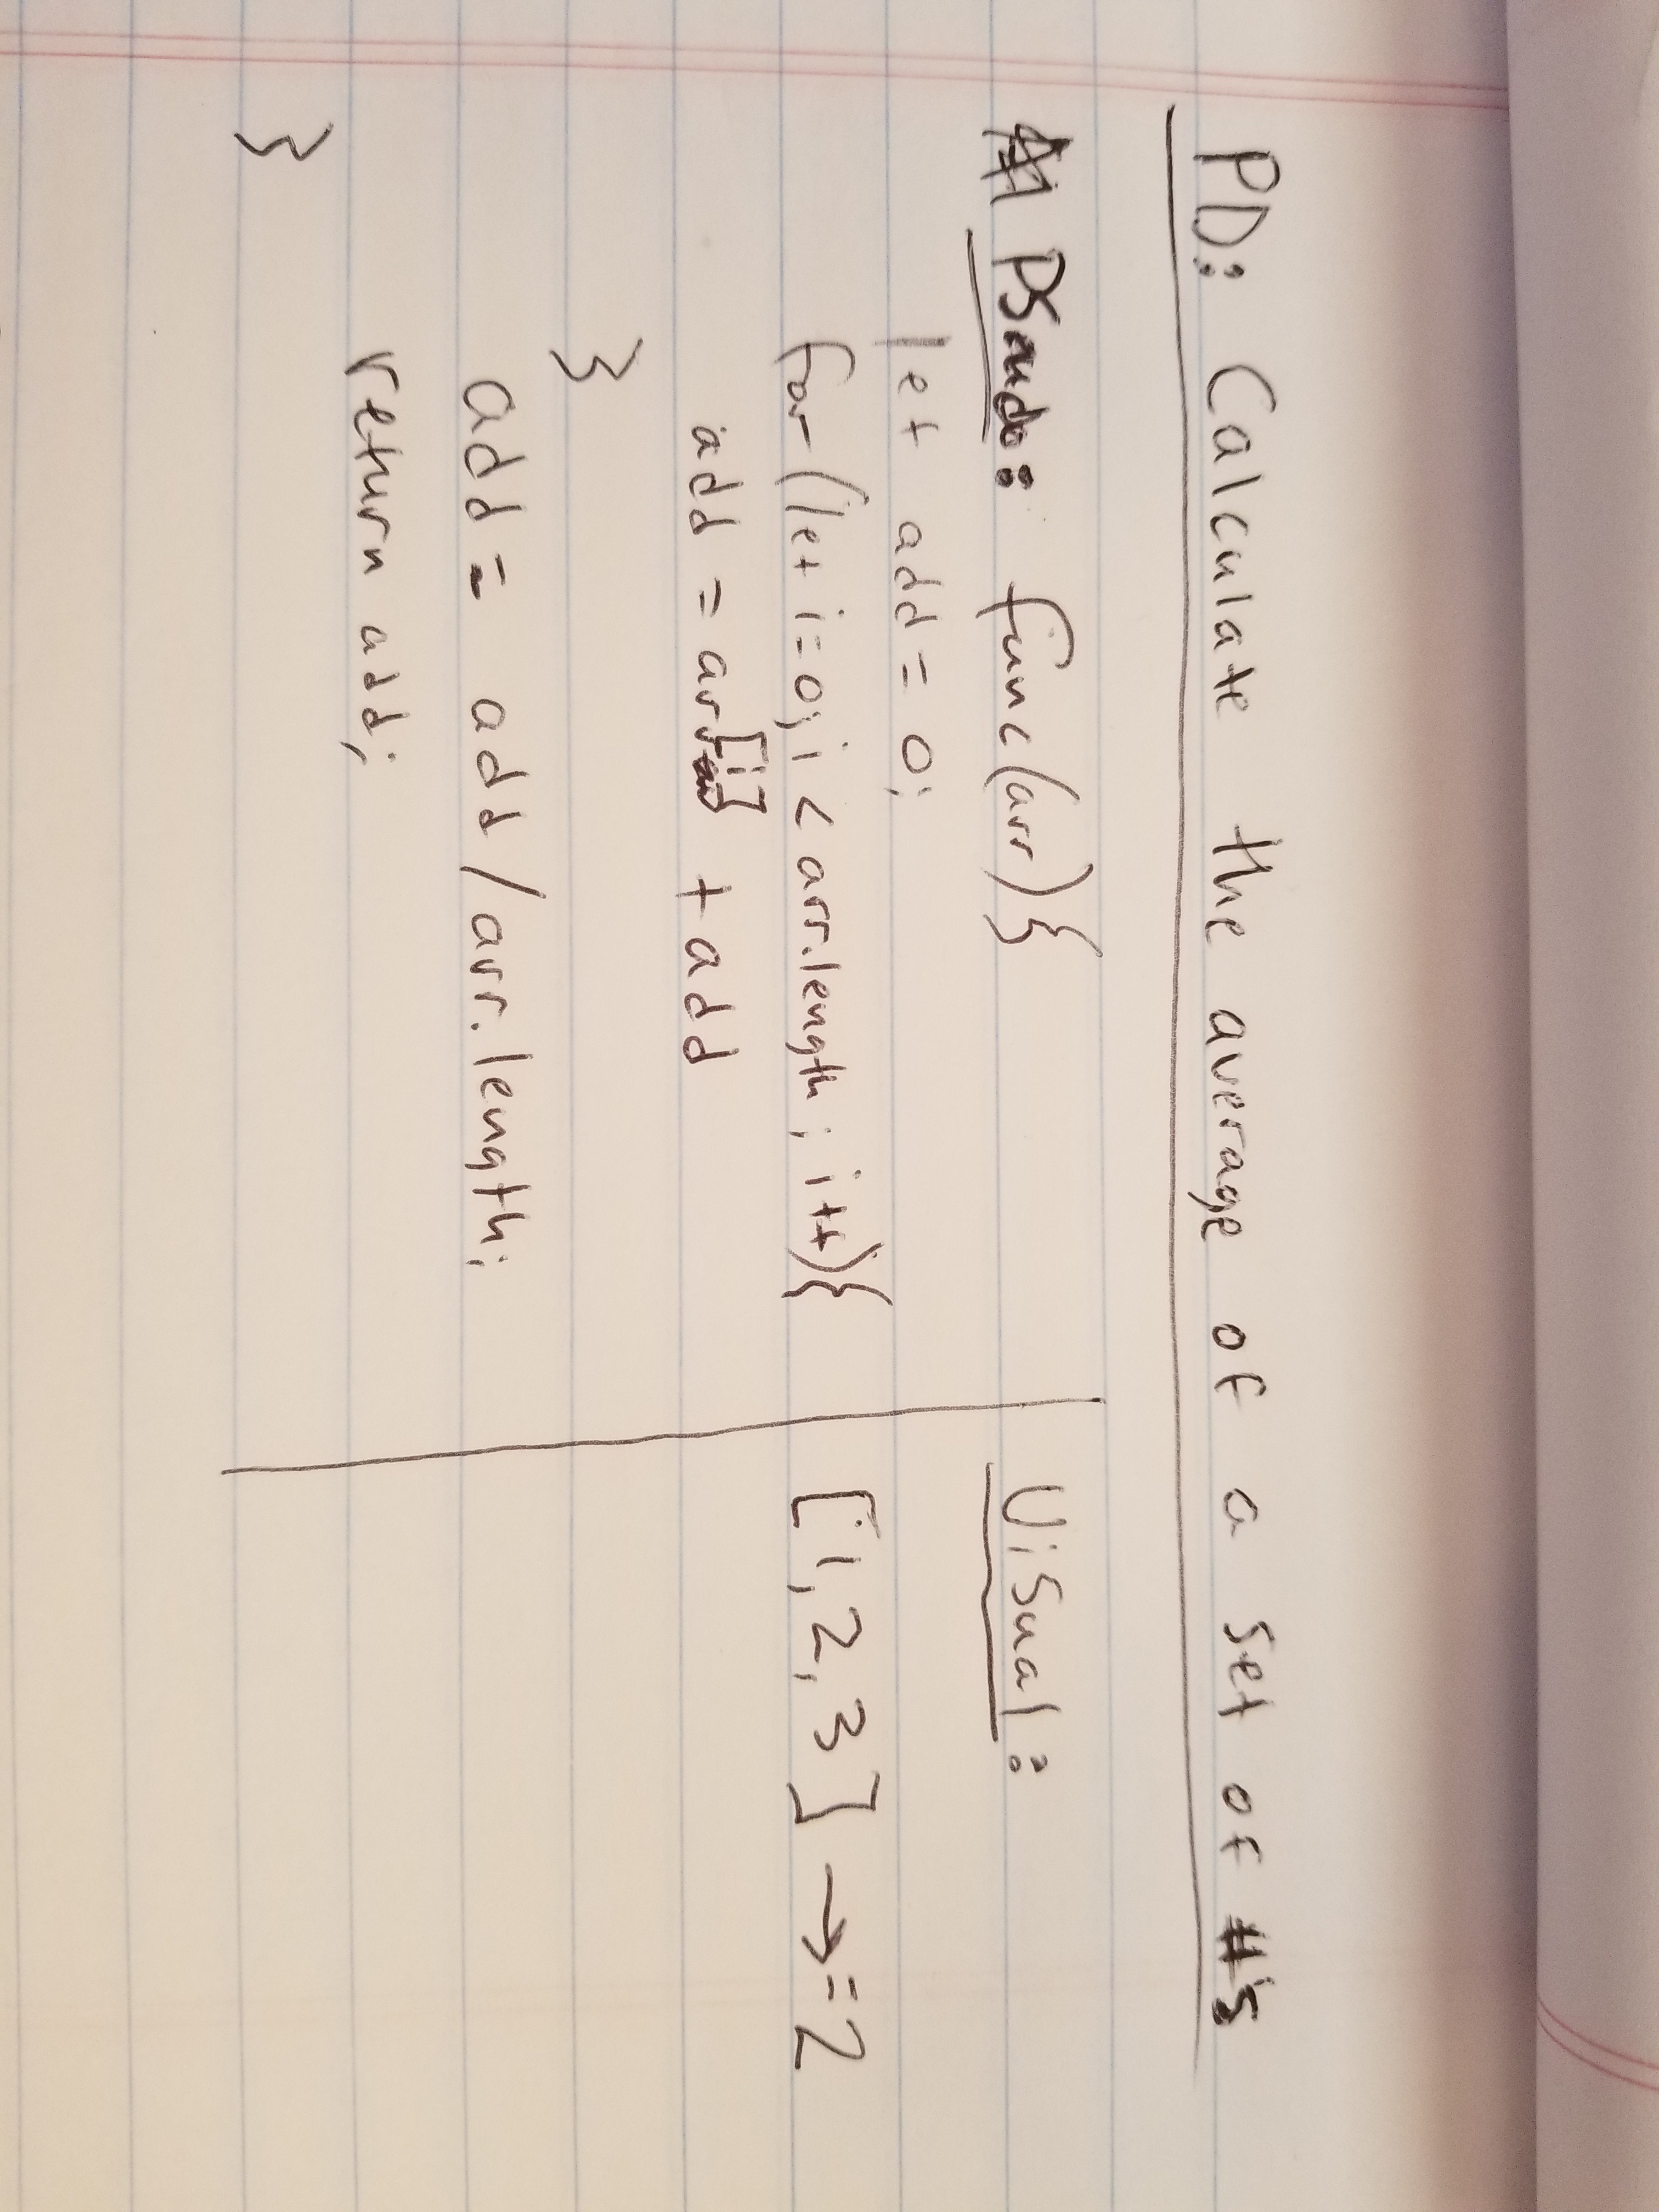 PD: Calculate the average of a set of #'s
PSaudo: func(arr){
let add = 0;
for (let i=0; i < arr.length; i++){
add = arr[i] + add
}
add = add/arr.length;
return add;
}
Visual:
[1,2,3] → = 2